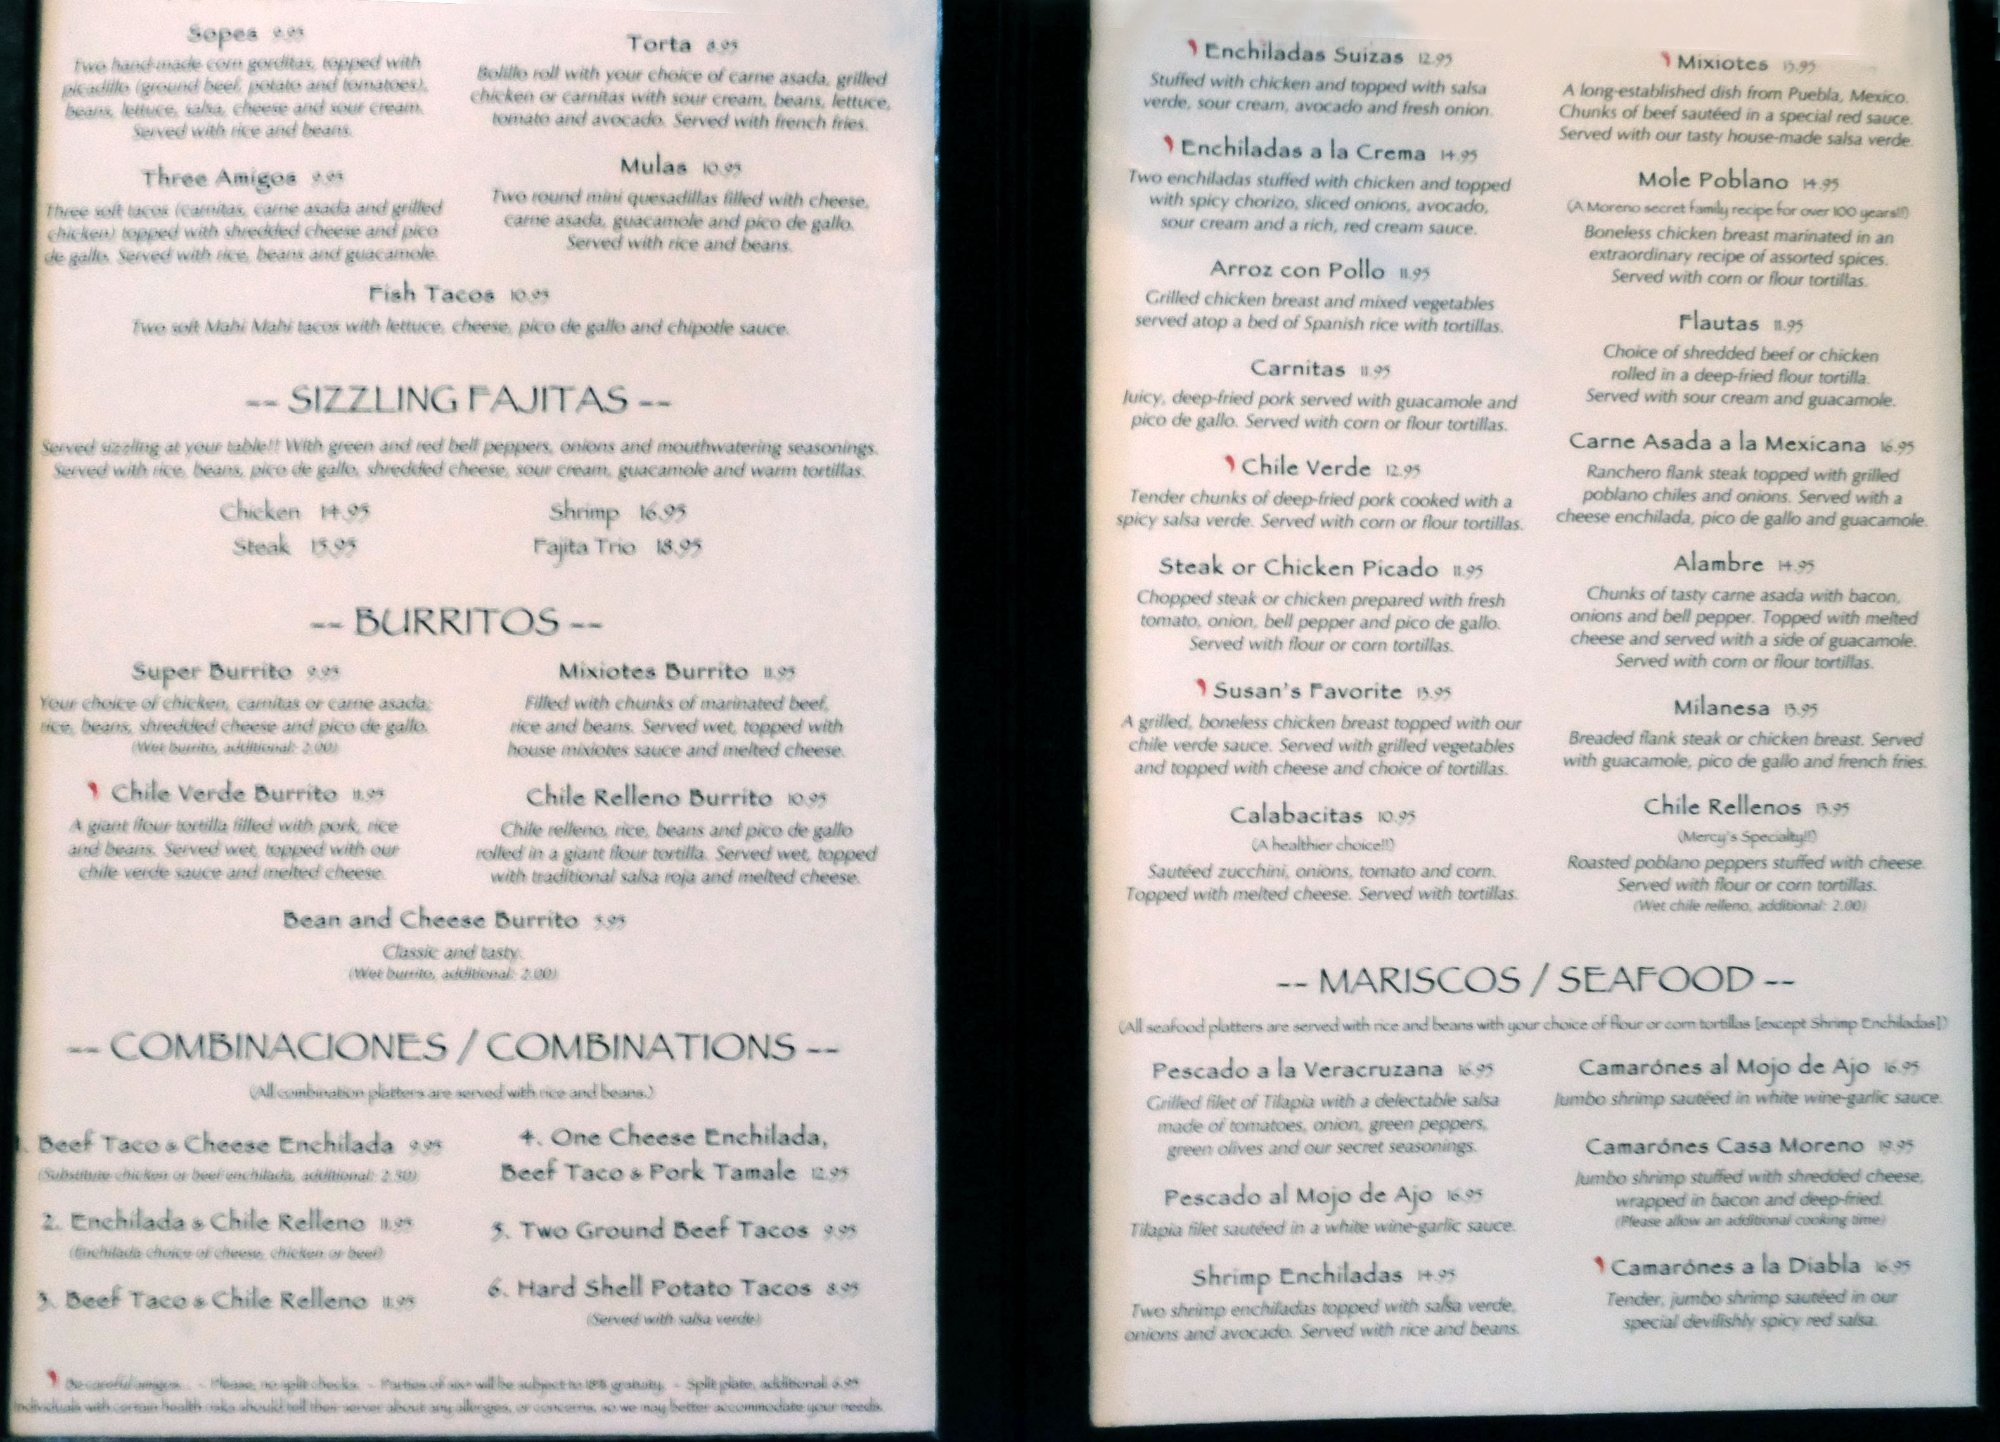 Sopes 9.95
Two hand-made corn gorditas, topped with
picadillo (ground beef, potato and tomatoes),
beans, lettuce, salsa, cheese and sour cream.
Served with rice and beans.
Three Amigos 9.95
Three soft tacos (carnitas, carne asada and grilled
chicken) topped with shredded cheese and pico
de gallo. Served with rice, beans and guacamole.
Torta 8.95
Bolillo roll with your choice of carne asada, grilled
chicken or carnitas with sour cream, beans, lettuce,
tomato and avocado. Served with french fries.
Mulas 10.95
Two round mini quesadillas filled with cheese,
carne asada, guacamole and pico de gallo.
Served with rice and beans.
Fish Tacos 10.95
Two soft Mahi Mahi tacos with lettuce, cheese, pico de gallo and chipotle sauce.
-- SIZZLING FAJITAS --
Served sizzling at your table!! With green and red bell peppers, onions and mouthwatering seasonings.
Served with rice, beans, pico de gallo, shredded cheese, sour cream, guacamole and warm tortillas.
Chicken 14.95
Steak 15.95
Shrimp 16.95
Fajita Trio 18.95
-- BURRITOS --
Super Burrito 9.95
Your choice of chicken, carnitas or carne asada;
rice, beans, shredded cheese and pico de gallo.
(Wet burrito, additional: 2.00)
Chile Verde Burrito 11.95
A giant flour tortilla filled with pork, rice
and beans. Served wet, topped with our
chile verde sauce and melted cheese.
Mixiotes Burrito 11.95
Filled with chunks of marinated beef,
rice and beans. Served wet, topped with
house mixiotes sauce and melted cheese.
Chile Relleno Burrito 10.95
Chile relleno, rice, beans and pico de gallo
rolled in a giant flour tortilla. Served wet, topped
with traditional salsa roja and melted cheese.
Bean and Cheese Burrito 5.95
Classic and tasty.
(Wet burrito, additional: 2.00)
-- COMBINACIONES / COMBINATIONS --
(All combination platters are served with rice and beans.)
1. Beef Taco & Cheese Enchilada 9.95
(Substitute chicken or beef enchilada, additional: 2.50)
2. Enchilada & Chile Relleno 11.95
(Enchilada choice of cheese, chicken or beef)
3. Beef Taco & Chile Relleno 11.95
4. One Cheese Enchilada,
Beef Taco & Pork Tamale 12.95
5. Two Ground Beef Tacos 9.95
6. Hard Shell Potato Tacos 8.95
(Served with salsa verde)
Be careful amigos... - Please, no split checks. - Parties of six+ will be subject to 18% gratuity. - Split plate, additional: 6.95
Individuals with certain health risks should tell their server about any allergies, or concerns, so we may better accommodate your needs.
Enchiladas Suizas 12.95
Stuffed with chicken and topped with salsa
verde, sour cream, avocado and fresh onion.
Enchiladas a la Crema 14.95
Two enchiladas stuffed with chicken and topped
with spicy chorizo, sliced onions, avocado,
sour cream and a rich, red cream sauce.
Arroz con Pollo 11.95
Grilled chicken breast and mixed vegetables
served atop a bed of Spanish rice with tortillas.
Carnitas 11.95
Juicy, deep-fried pork served with guacamole and
pico de gallo. Served with corn or flour tortillas.
Chile Verde 12.95
Tender chunks of deep-fried pork cooked with a
spicy salsa verde. Served with corn or flour tortillas.
Steak or Chicken Picado 11.95
Chopped steak or chicken prepared with fresh
tomato, onion, bell pepper and pico de gallo.
Served with flour or corn tortillas.
Susan's Favorite 13.95
A grilled, boneless chicken breast topped with our
chile verde sauce. Served with grilled vegetables
and topped with cheese and choice of tortillas.
Calabacitas 10.95
(A healthier choice!!)
Sautéed zucchini, onions, tomato and corn.
Topped with melted cheese. Served with tortillas.
Mixiotes 13.95
A long-established dish from Puebla, Mexico.
Chunks of beef sautéed in a special red sauce.
Served with our tasty house-made salsa verde.
Mole Poblano 14.95
(A Moreno secret family recipe for over 100 years!!)
Boneless chicken breast marinated in an
extraordinary recipe of assorted spices.
Served with corn or flour tortillas.
Flautas 11.95
Choice of shredded beef or chicken
rolled in a deep-fried flour tortilla.
Served with sour cream and guacamole.
Carne Asada a la Mexicana 16.95
Ranchero flank steak topped with grilled
poblano chiles and onions. Served with a
cheese enchilada, pico de gallo and guacamole.
Alambre 14.95
Chunks of tasty carne asada with bacon,
onions and bell pepper. Topped with melted
cheese and served with a side of guacamole.
Served with corn or flour tortillas.
Milanesa 13.95
Breaded flank steak or chicken breast. Served
with guacamole, pico de gallo and french fries.
Chile Rellenos 13.95
(Mercy's Specialty!!)
Roasted poblano peppers stuffed with cheese.
Served with flour or corn tortillas.
(Wet chile relleno, additional: 2.00)
-- MARISCOS / SEAFOOD --
(All seafood platters are served with rice and beans with your choice of flour or corn tortillas [except Shrimp Enchiladas])
Pescado a la Veracruzana 16.95
Grilled filet of Tilapia with a delectable salsa
made of tomatoes, onion, green peppers,
green olives and our secret seasonings.
Pescado al Mojo de Ajo 16.95
Tilapia filet sautéed in a white wine-garlic sauce.
Shrimp Enchiladas 14.95
Two shrimp enchiladas topped with salsa verde,
onions and avocado. Served with rice and beans.
Camarónes al Mojo de Ajo 16.95
Jumbo shrimp sautéed in white wine-garlic sauce.
Camarónes Casa Moreno 19.95
Jumbo shrimp stuffed with shredded cheese,
wrapped in bacon and deep-fried.
(Please allow an additional cooking time)
Camarónes a la Diabla 16.95
Tender, jumbo shrimp sautéed in our
special devilishly spicy red salsa.